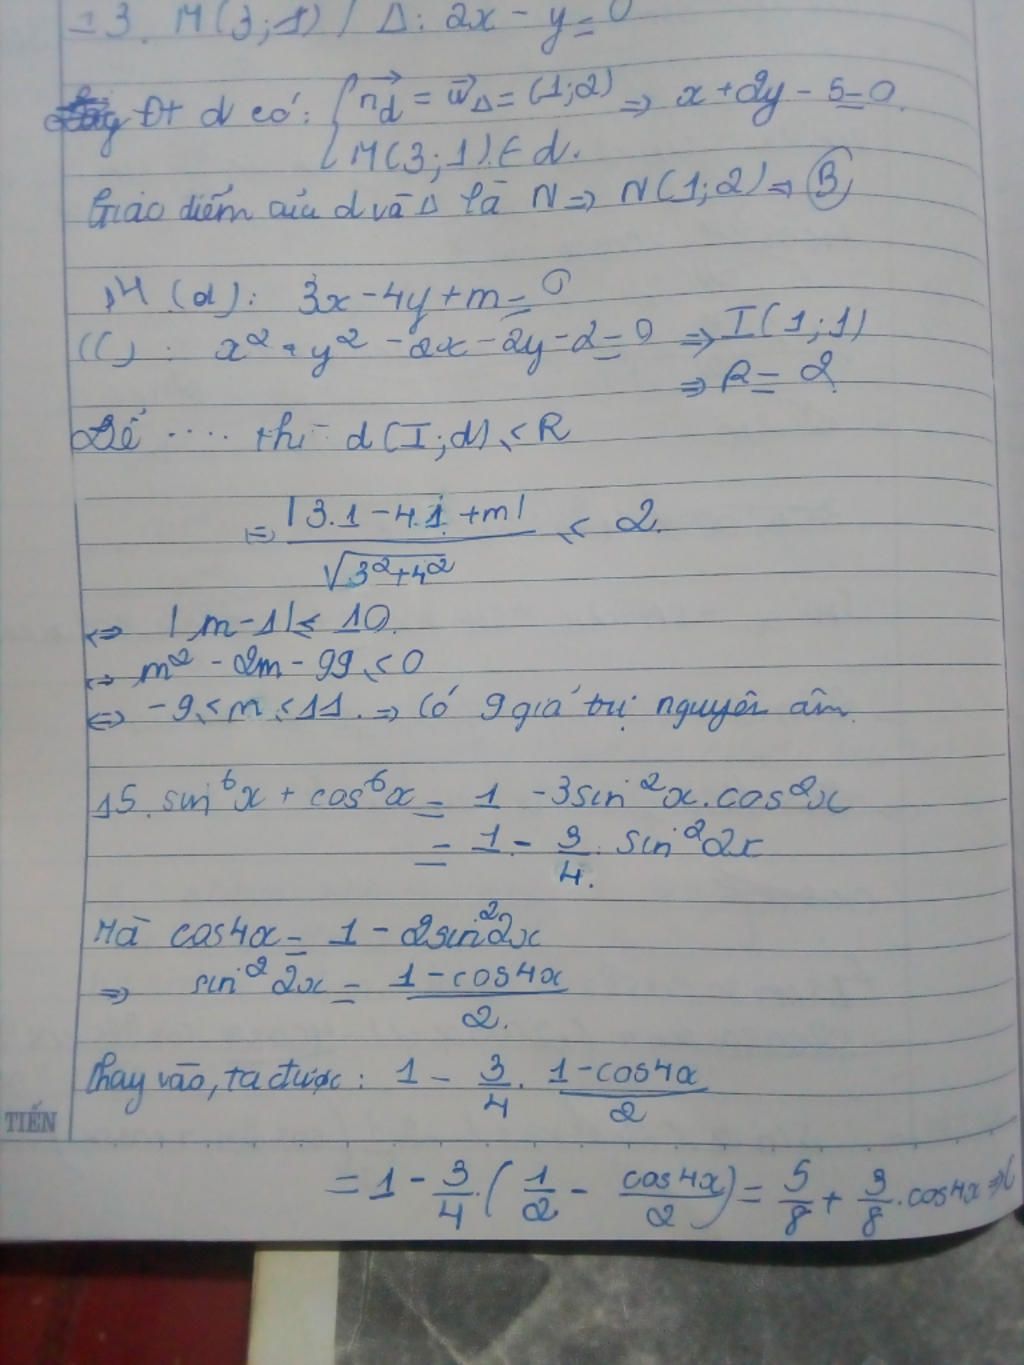 13. M(3;1) / Δ: 2x - y = 0
Đt d có: { n⃗d = u⃗Δ = (1;2) ⇒ x + 2y - 5 = 0.
M(3;1) ∈ d.
Giao điểm của d và Δ là N ⇒ N(1;2) ⇒ B
14 (d): 3x - 4y + m = 0
(C): x² + y² - 2x - 2y - 2 = 0 ⇒ I(1;1)
⇒ R = 2
Để .... thì d(I;d) ≤ R
⇒ |3.1 - 4.1 + m| / √(3² + 4²) ≤ 2.
⇔ |m - 1| ≤ 10.
⇔ m² - 2m - 99 ≤ 0
⇔ -9 ≤ m ≤ 11. ⇒ Có 9 giá trị nguyên âm.
15. sin⁶x + cos⁶x = 1 - 3sin²x.cos²x
= 1 - 3/4. sin²2x
Mà cos4x = 1 - 2sin²2x
⇒ sin²2x = (1 - cos4x)/2.
Thay vào, ta được: 1 - 3/4 . (1 - cos4x)/2
TIẾN
= 1 - 3/4.(1/2 - cos4x/2) = 5/8 + 3/8.cos4x ⇒ C